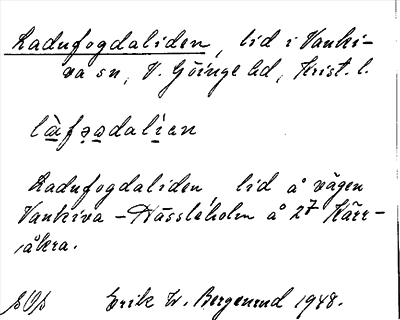 Ladufogdaliden, lid i Vanki-
va sn, V. Göinge hd, Krist. l.
là̱fə̱a̱dalían
Ladufogdaliden, lid å vägen
Vankiva - Hässleholm å 27 Kärr-
åkra.
SOS Erik W. Bergenrud 1948.